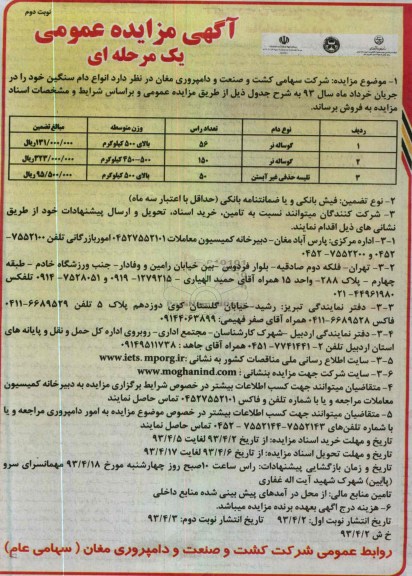 نوبت دوم
آگهی مزایده عمومی
یک مرحله ای
۱- موضوع مزایده: شرکت سهامی کشت و صنعت و دامپروری مغان در نظر دارد انواع دام سنگین خود را در
جریان خرداد ماه سال ۹۳ به شرح جدول ذیل از طریق مزایده عمومی و براساس شرایط و مشخصات اسناد
مزایده به فروش برساند.
ردیف نوع دام تعداد راس وزن متوسطه مبالغ تضمین
۱ گوساله نر ۵۶ بالای ۵۰۰ کیلوگرم ۱۳۱/۰۰۰/۰۰۰ریال
۲ گوساله نر ۱۵۰ ۵۰۰-۴۵۰ کیلوگرم ۳۲۳/۰۰۰/۰۰۰ریال
۳ تلیسه حذفی غیر آبستن ۵۰ بالای ۵۰۰ کیلوگرم ۹۵/۵۰۰/۰۰۰ریال
۲- نوع تضمین: فیش بانکی و یا ضمانتنامه بانکی (حداقل با اعتبار سه ماه)
۳- شرکت کنندگان میتوانند نسبت به تامین، خرید اسناد، تحویل و ارسال پیشنهادات خود از طریق
نشانی های ذیل اقدام نمایند.
۳-۱- اداره مرکزی: پارس آباد مغان- دبیرخانه کمیسیون معاملات ۰۴۵۲۷۵۵۲۱۰۱ امور بازرگانی تلفن ۷۵۵۲۱۰۰-
۰۴۵۲ و ۷۵۵۲۲۰۰-۰۴۵۲
۳-۲- تهران- فلکه دوم صادقیه- بلوار فردوس -بین خیابان رامین و وفادار- جنب ورزشگاه خادم - طبقه
چهارم - پلاک ۲۸۸- واحد ۱۵ همراه آقای حمید الهیاری - ۱۲۷۹۲۱۵-۰۹۱۹ و ۷۵۲۸۰۵۱-۰۹۱۴ تلفکس
۴۴۹۶۱۹۸۰-۰۲۱
۳-۳- دفتر نمایندگی تبریز: رشید- خیابان گلستان کوی دوازدهم پلاک ۵ تلفن ۶۶۸۹۵۲۹-۰۴۱۱
فاکس ۶۶۸۹۵۲۸-۰۴۱۱ همراه آقای صفر فهیمی: ۰۹۱۴۴۰۶۳۸۹۹
۳-۴- دفتر نمایندگی اردبیل -شهرک کارشناسان- مجتمع اداری- روبروی اداره کل حمل و نقل و پایانه های
استان اردبیل تلفن ۲-۷۷۴۱۴۴۱-۰۴۵۱ همراه آقای جاهد : ۰۹۱۴۹۵۱۱۷۳۸
۳-۵- سایت اطلاع رسانی ملی مناقصات کشور به نشانی :www.iets. mporg.ir
۳-۶- سایت شرکت جهت مزایده بنشانی : www.moghanind.com
۴- متقاضیان میتوانند جهت کسب اطلاعات بیشتر در خصوص شرایط برگزاری مزایده به دبیرخانه کمیسیون
معاملات مراجعه و یا با شماره تلفن و فاکس ۰۴۵۲۷۵۵۲۱۰۱ تماس حاصل نمایند
۵- متقاضیان میتوانند جهت کسب اطلاعات بیشتر در خصوص موضوع مزایده به امور دامپروری مراجعه و یا
با شماره تلفن‌های ۷۵۵۲۱۴۳-۷۵۵۲۱۴۴ - ۰۴۵۲ تماس حاصل نمایند
تاریخ و مهلت خرید اسناد مزایده: از تاریخ ۹۳/۴/۲ لغایت ۹۳/۴/۵
تاریخ و مهلت تحویل اسناد مزایده: از تاریخ ۹۳/۴/۶ لغایت ۹۳/۴/۱۷
تاریخ و زمان بازگشایی پیشنهادات: راس ساعت ۱۰صبح روز چهارشنبه مورخ ۹۳/۴/۱۸ مهمانسرای سرو
(پایین) شهرک شهید آیت اله غفاری
تامین منابع مالی: از محل در آمدهای پیش بینی شده منابع داخلی
۶- هزینه درج آگهی بعهده برنده مزایده میباشد.
تاریخ انتشار نوبت اول: ۹۳/۴/۲ تاریخ انتشار نوبت دوم: ۹۳/۴/۳
خ ش ۹۳/۴/۲
روابط عمومی شرکت کشت و صنعت و دامپروری مغان ( سهامی عام)